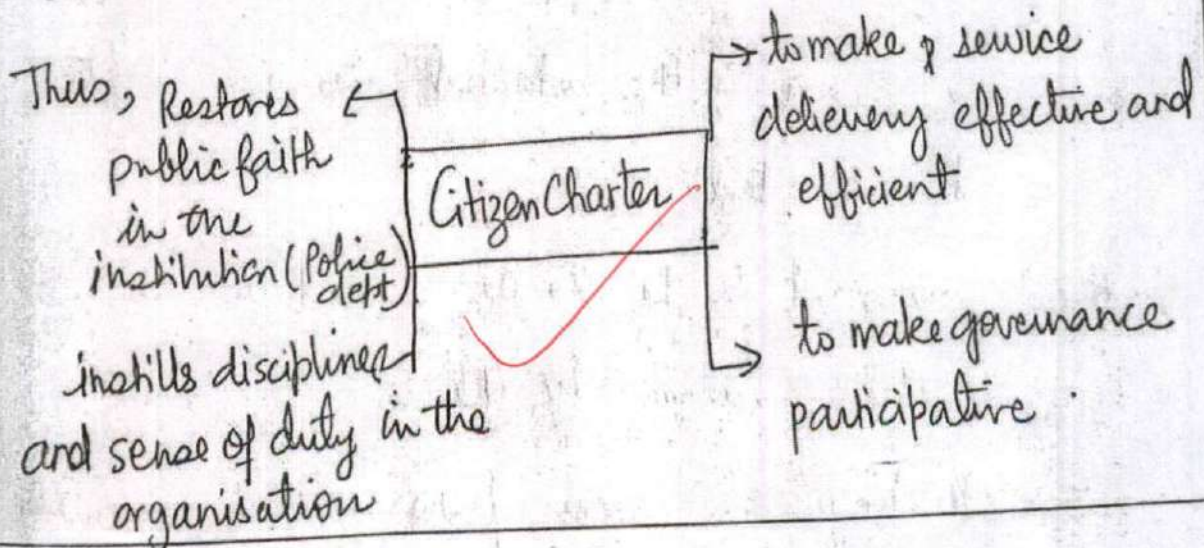 Thus, Restores
public faith
in the
institution (Police
dept)
instills discipline
and sense of duty in the
organisation
Citizen Charter
to make service
delievery effective and
efficient
to make governance
participative.